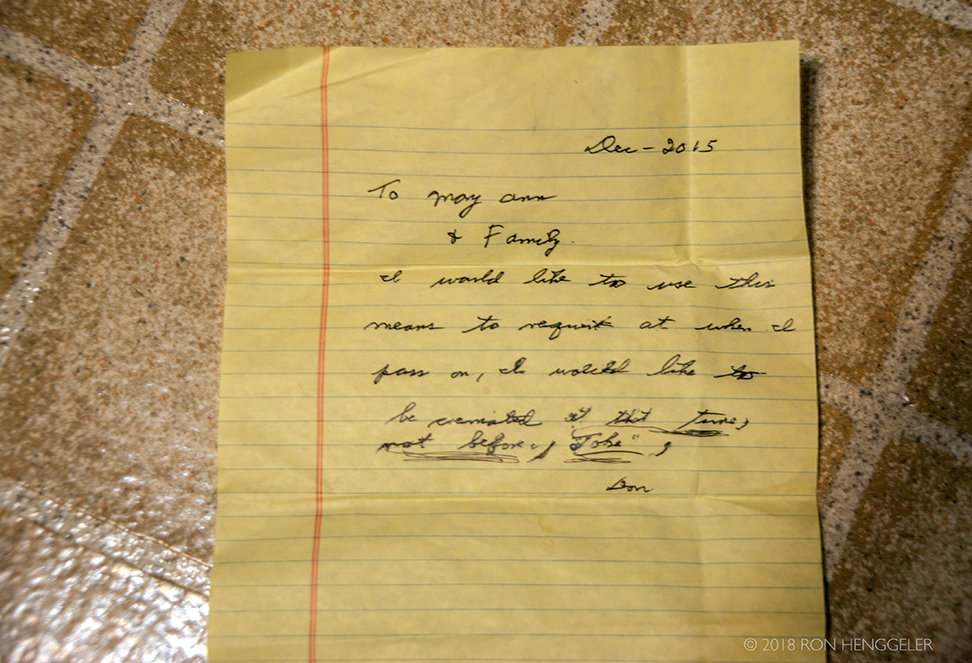 Dec - 2015
To may ann
& Family.
I would like to use this
means to request at when I
pass on, I would like to
be cremated at that time,
not before, "Joke",
Don
© 2018 RON HENGGELER